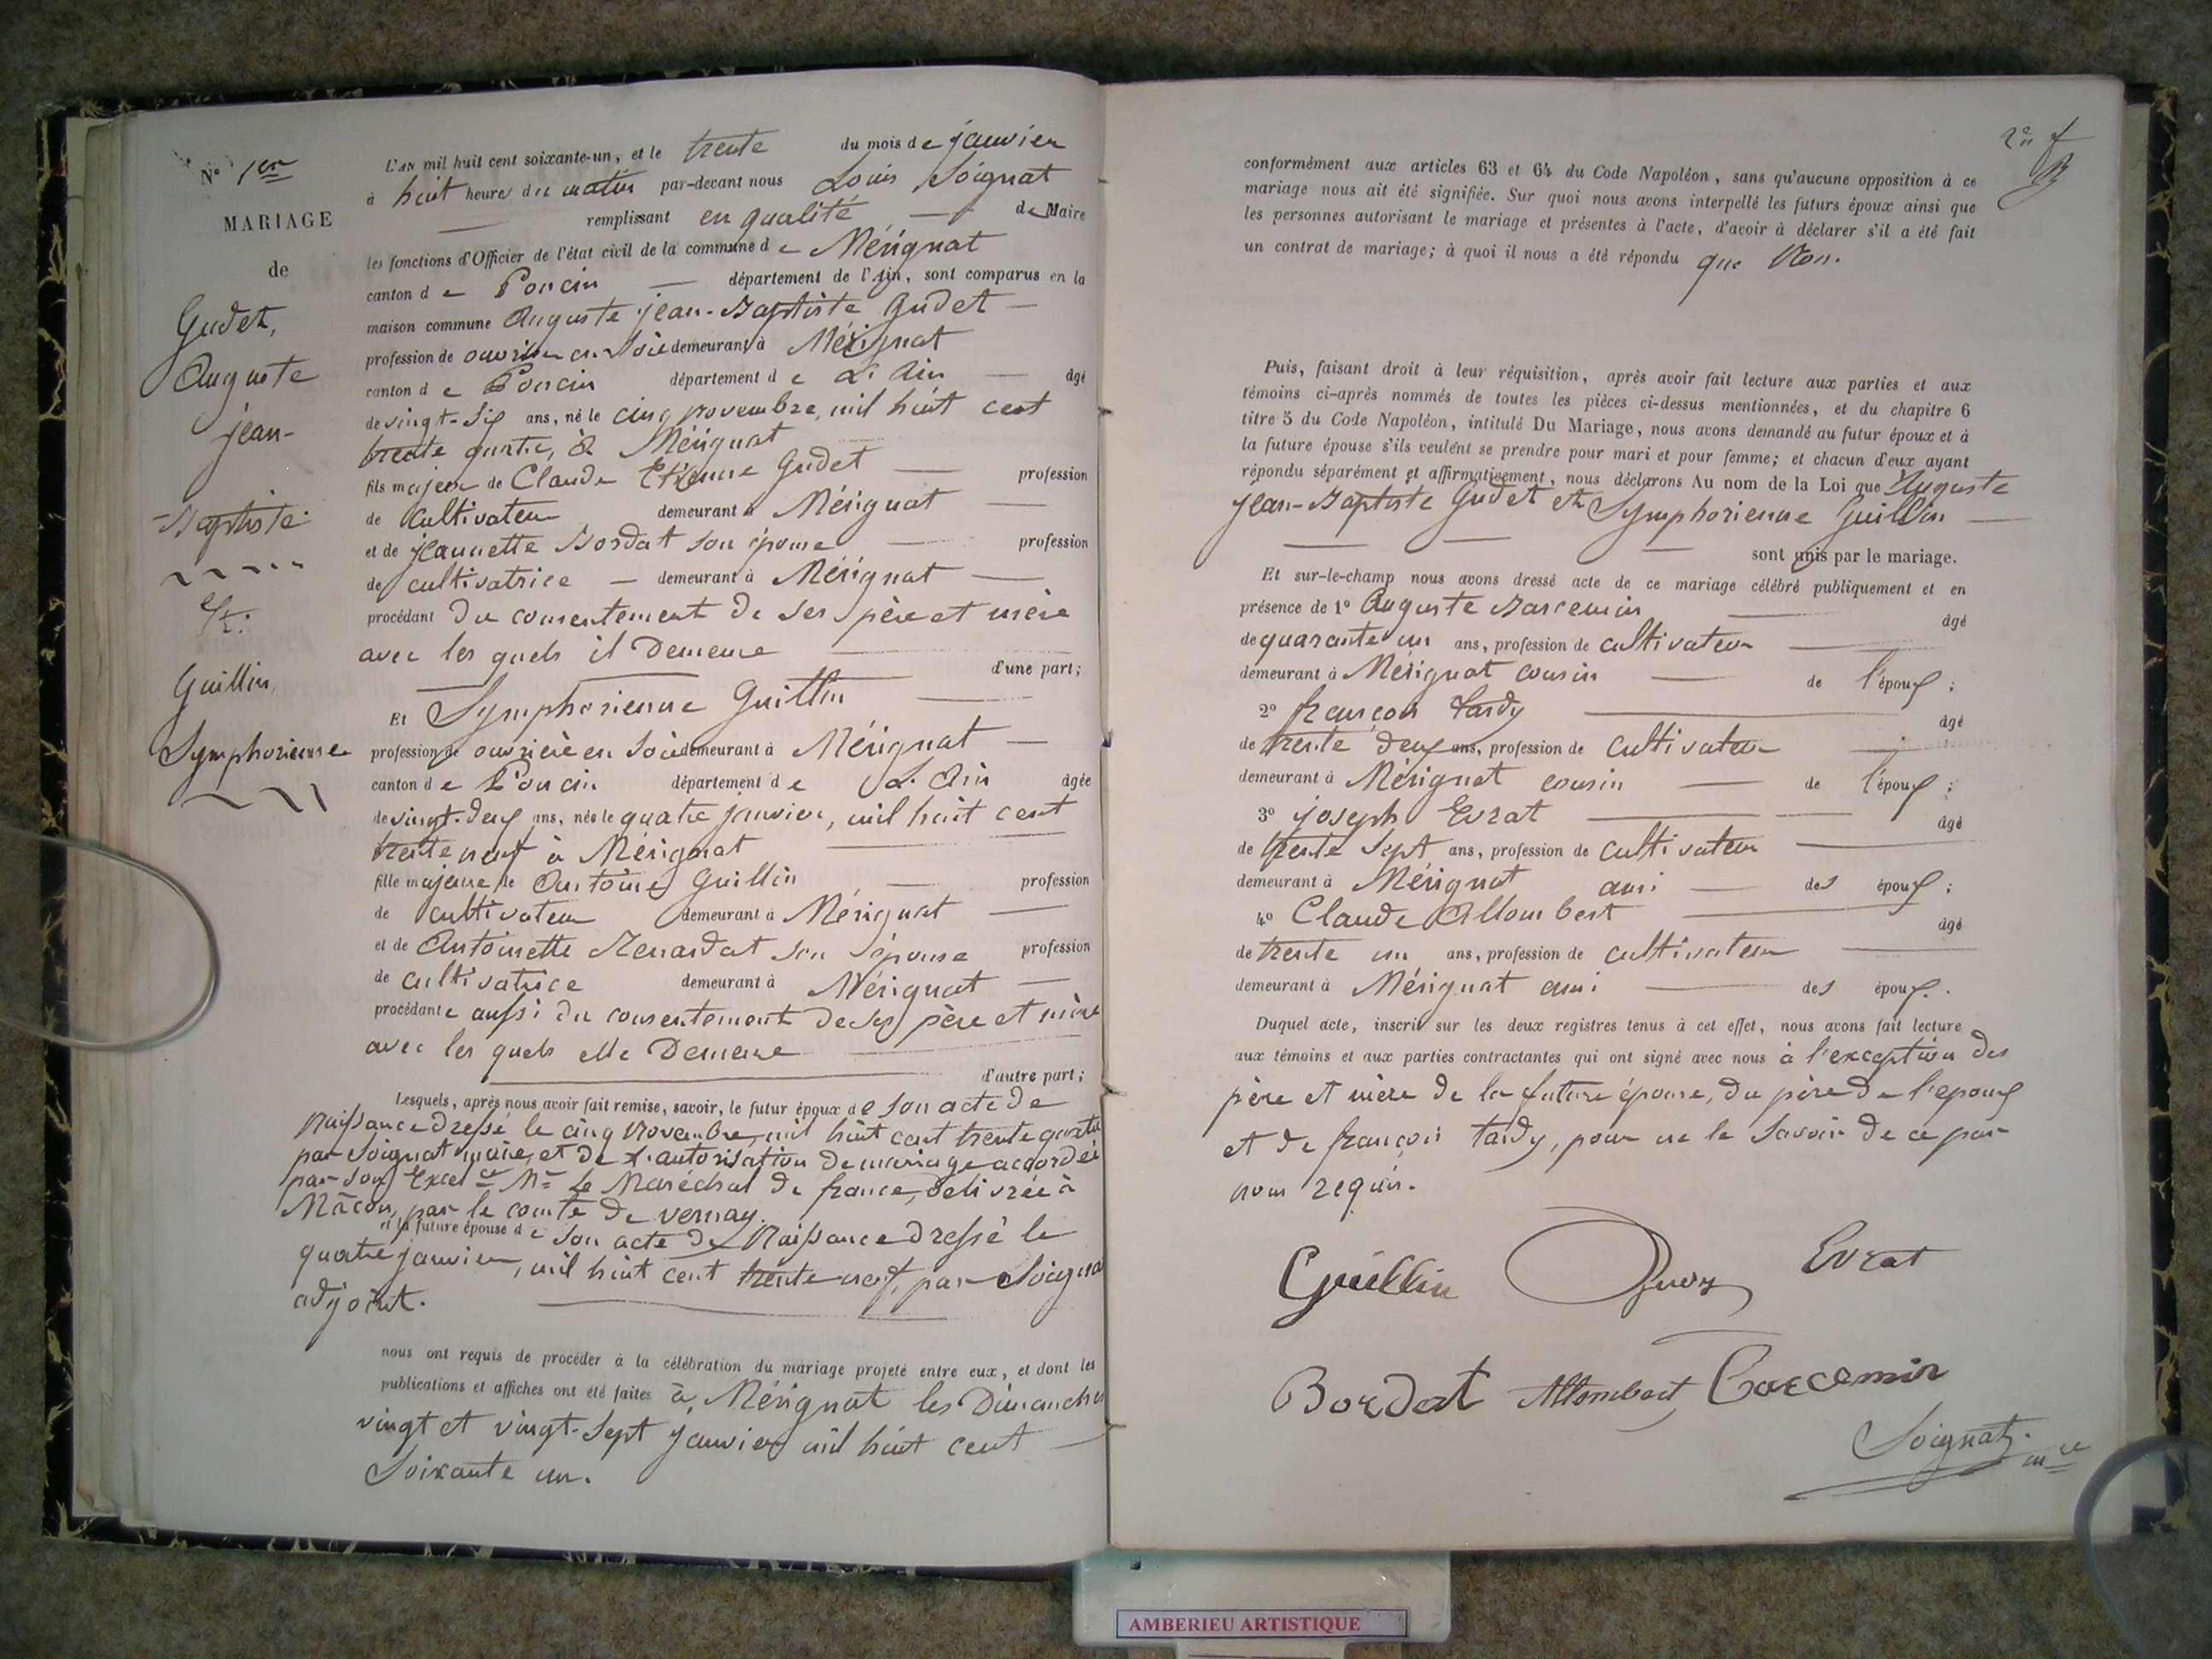 N° 1er
MARIAGE
de
Gudet,
Auguste
jean-
Baptiste
Et
Guillin,
Symphorienne
L'AN mil huit cent soixante-un, et le trente du mois de janvier
à huit heure du matin par-devant nous Louis Soignat
remplissant en qualité de Maire
les fonctions d'Officier de l'état civil de la commune de Mérignat
canton de Poncin département de l'Ain, sont comparus en la
maison commune Auguste jean-Baptiste Gudet
profession de ouvrier en Soie demeurant à Mérignat
canton de Poncin département de L'Ain âgé
de vingt-six ans, né le cinq novembre, mil huit cent
trente quatre, à Mérignat
fils majeur de Claude Etienne Gudet profession
de cultivateur demeurant à Mérignat
et de jeannette Bordat son épouse profession
de cultivatrice demeurant à Mérignat
procédant du consentement de ses père et mère
avec les quels il Demeure
d'une part;
Et Symphorienne Guillin
profession de ouvrière en Soie demeurant à Mérignat
canton de Poncin département de L'Ain âgée
de vingt-deux ans, née le quatre janvier, mil huit cent
trente neuf à Mérignat
fille majeure de Antoine Guillin profession
de cultivateur demeurant à Mérignat
et de Antoinette Renardat son épouse profession
de cultivatrice demeurant à Mérignat
procédante aussi du consentement de ses père et mère
avec les quels elle Demeure
d'autre part;
Lesquels, après nous avoir fait remise, savoir, le futur époux de son acte de
Naissance dressé le cinq Novembre, mil huit cent trente quatre
par Soignat maire, et de l'autorisation de mariage accordée
par Son Excelce Mr Le Maréchal de france, délivrée à
Mâcon, par le comte de vernay.
et la future épouse de son acte de Naissance dressé le
quatre janvier, mil huit cent trente neuf, par Soignat
adjoint.
nous ont requis de procéder à la célébration du mariage projeté entre eux, et dont les
publications et affiches ont été faites à Mérignat les Dimanches
vingt et vingt-sept janvier mil huit cent
Soixante un.
2e f
conformément aux articles 63 et 64 du Code Napoléon, sans qu'aucune opposition à ce
mariage nous ait été signifiée. Sur quoi nous avons interpellé les futurs époux ainsi que
les personnes autorisant le mariage et présentes à l'acte, d'avoir à déclarer s'il a été fait
un contrat de mariage; à quoi il nous a été répondu que Non.
Puis, faisant droit à leur réquisition, après avoir fait lecture aux parties et aux
témoins ci-après nommés de toutes les pièces ci-dessus mentionnées, et du chapitre 6
titre 5 du Code Napoléon, intitulé Du Mariage, nous avons demandé au futur époux et à
la future épouse s'ils veulent se prendre pour mari et pour femme; et chacun d'eux ayant
répondu séparément et affirmativement, nous déclarons Au nom de la Loi que Auguste
Jean-Baptiste Gudet et Symphorienne Guillin
sont unis par le mariage.
Et sur-le-champ nous avons dressé acte de ce mariage célébré publiquement et en
présence de 1° Auguste Barcemin âgé
de quarante un ans, profession de cultivateur
demeurant à Mérignat cousin de l'époux;
2° françois Tardy âgé
de trente deux ans, profession de cultivateur
demeurant à Mérignat cousin de l'époux;
3° joseph Evrat âgé
de trente sept ans, profession de cultivateur
demeurant à Mérignat ami des époux;
4° Claude Allombert âgé
de trente un ans, profession de cultivateur
demeurant à Mérignat ami des époux.
Duquel acte, inscrit sur les deux registres tenus à cet effet, nous avons fait lecture
aux témoins et aux parties contractantes qui ont signé avec nous à l'exception des
père et mère de la future épouse, du père de l'époux
et de françois tardy, pour ne le Savoir de ce par
nous requis.
Guillin Evrat
Bordat Allombert Barcemin
Soignat mre
AMBERIEU ARTISTIQUE